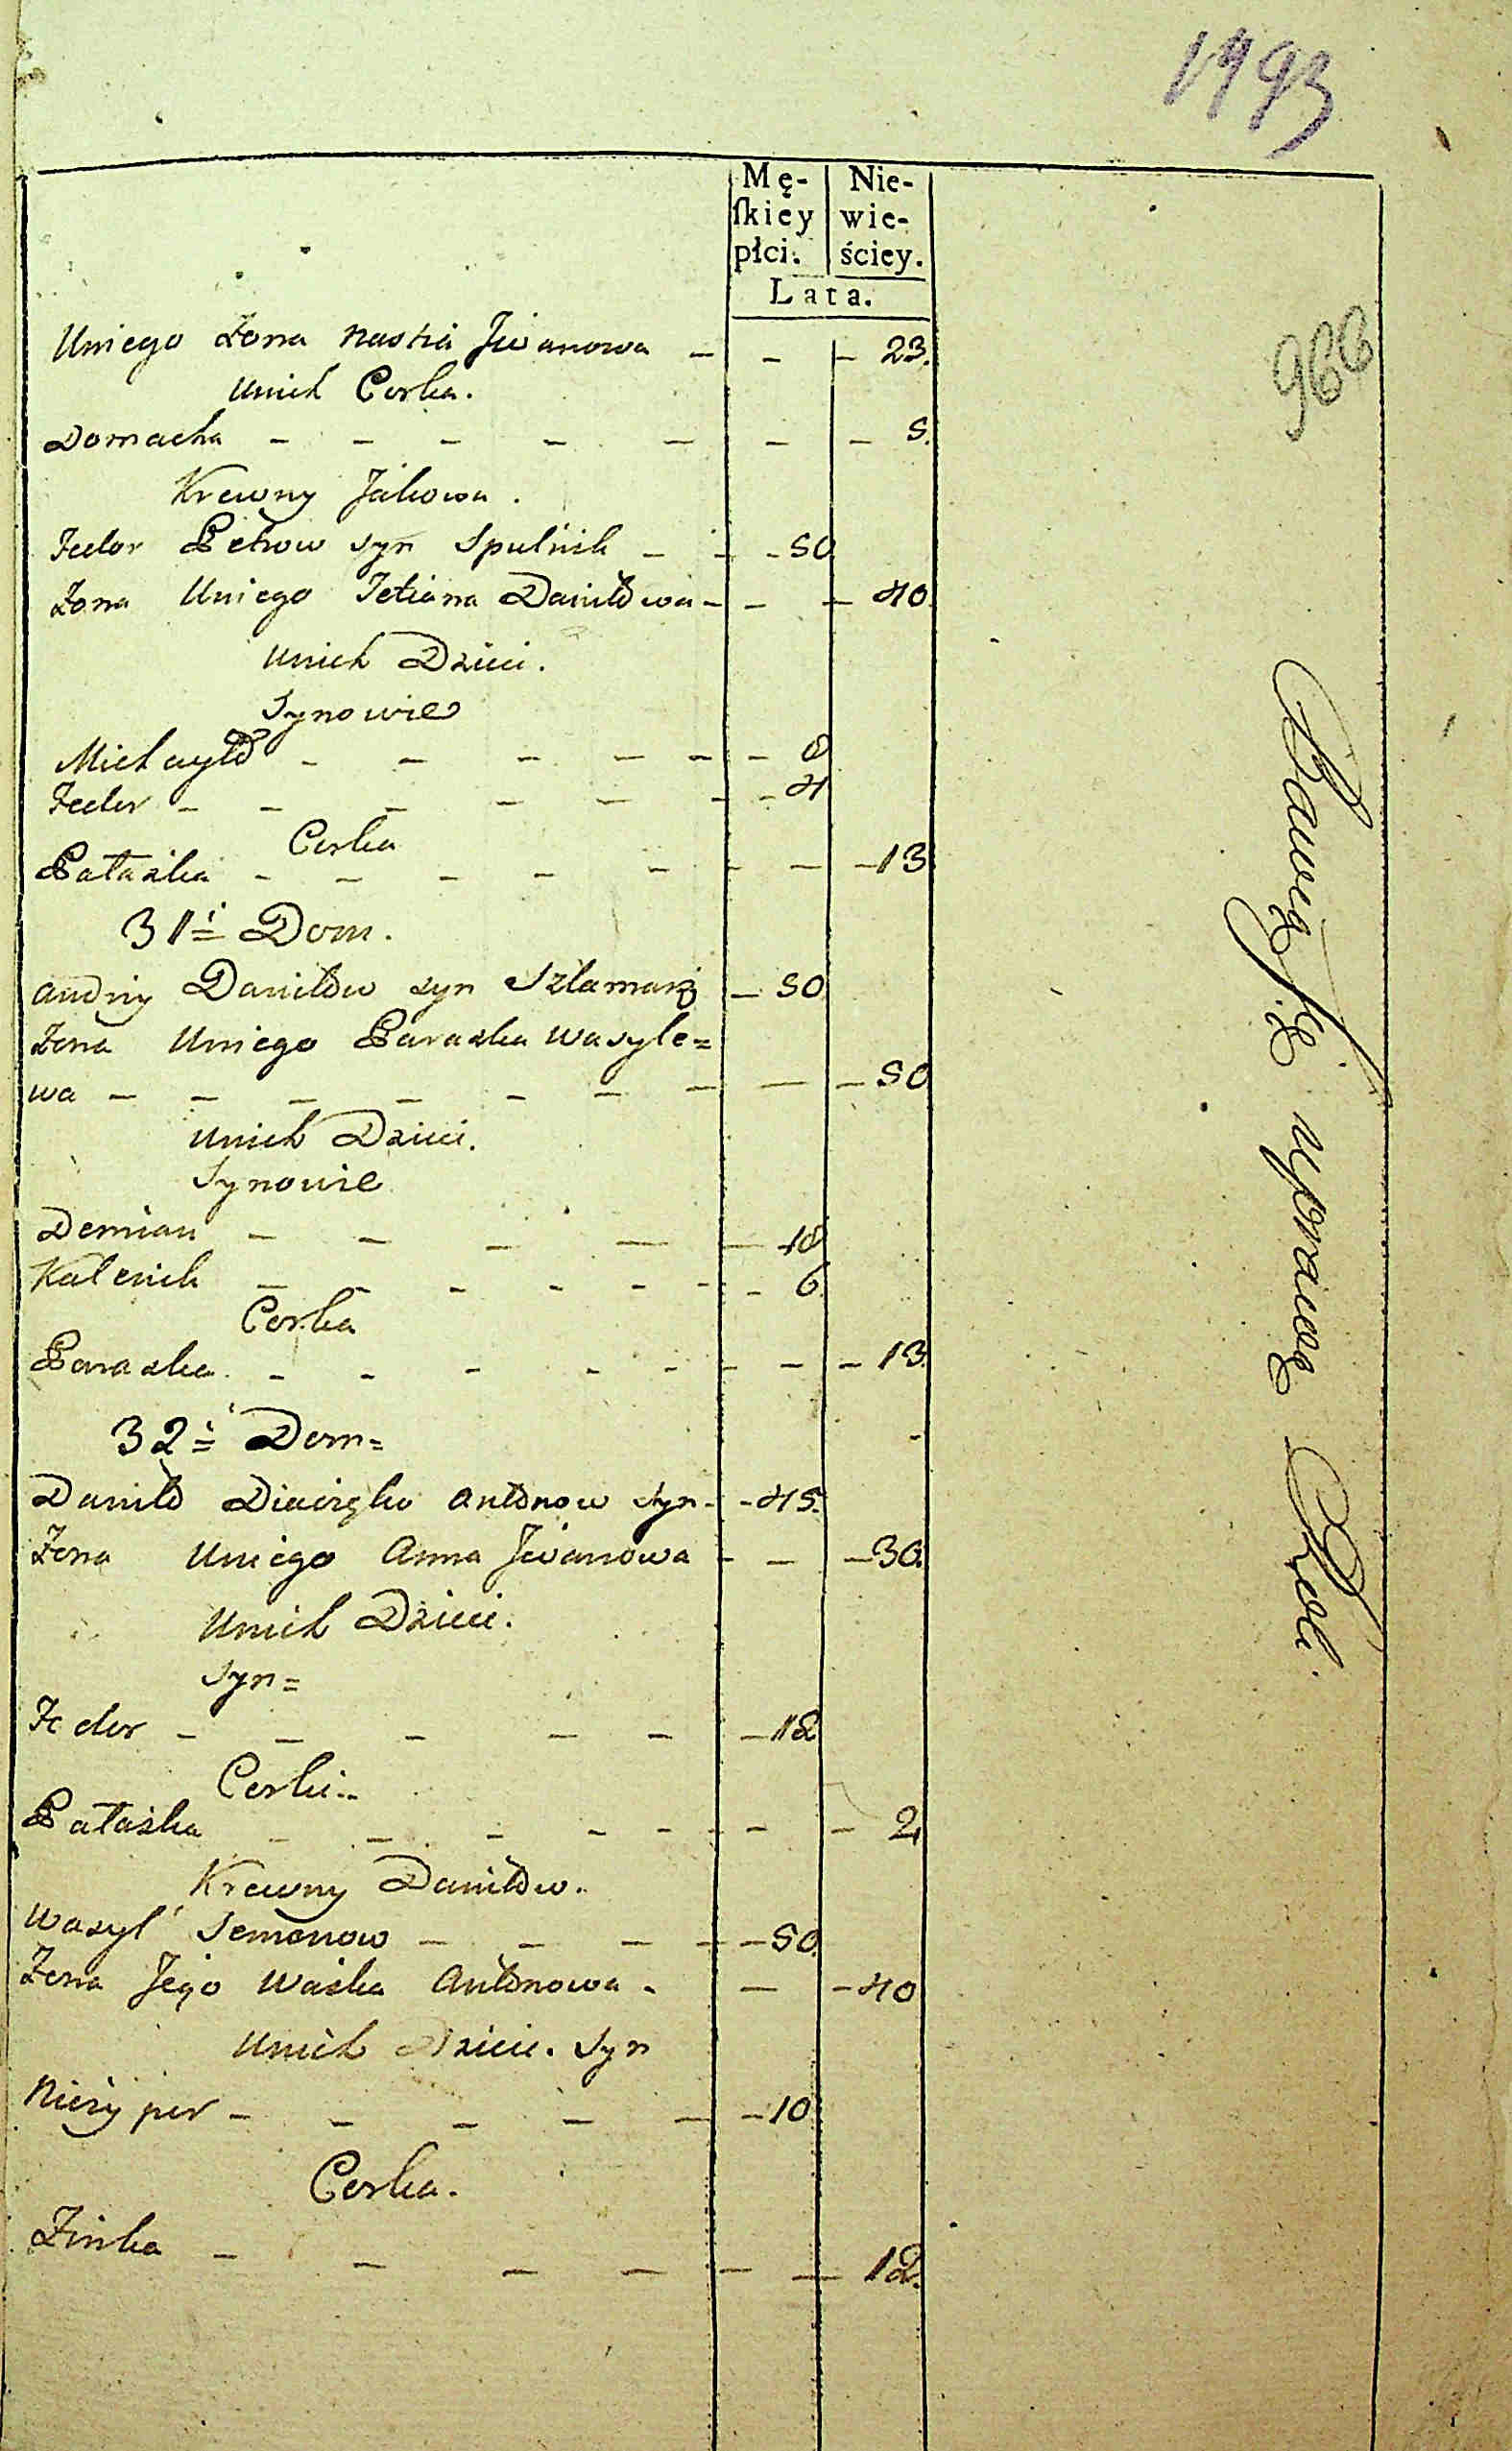 1993
Mę-
ſkiey
płci.
Nie-
wie-
ściey.
Lata.
966
Uniego Żona Nastia Jwanowa - - - 23.
Unich Corka.
Domacha - - - - - - - 5.
Krewny Jakowa.
Fedor Petrow syn Spulnik - - - 50
Żona Uniego Tetiana Daniłowa - - - 40.
Unich Dzieci.
Synowie
Michayło - - - - - - 8
Fedor - - - - - - - 4
Corka
Pałażka - - - - - - - - 13
31=i Dom.
Andriy Daniłow syn Szlamarz - 50
Żona Uniego Paraska Wasyle=
wa - - - - - - - - - 50
Unich Dzieci.
Synowie
Demian - - - - - 18
Kalenik - - - - - - - 6
Corka
Paraska - - - - - - - - 13.
32=i Dom=
Daniło Antonow syn - - 45.
Żona Uniego Anna Jwanowa - - - 30.
Unich Dzieci.
Syn=
Fedor - - - - - - 12
Corki..
Pałażka - - - - - - - - 2
Krewny Daniłow.
Wasyl Semenow - - - - - 50.
Żona Jego Waska Antonowa - - - 40
Unich Dzieci. Syn
Niczypor - - - - - - 10
Corka.
Zinka - - - - - - - 12.
Bawią się uprawą Roli.